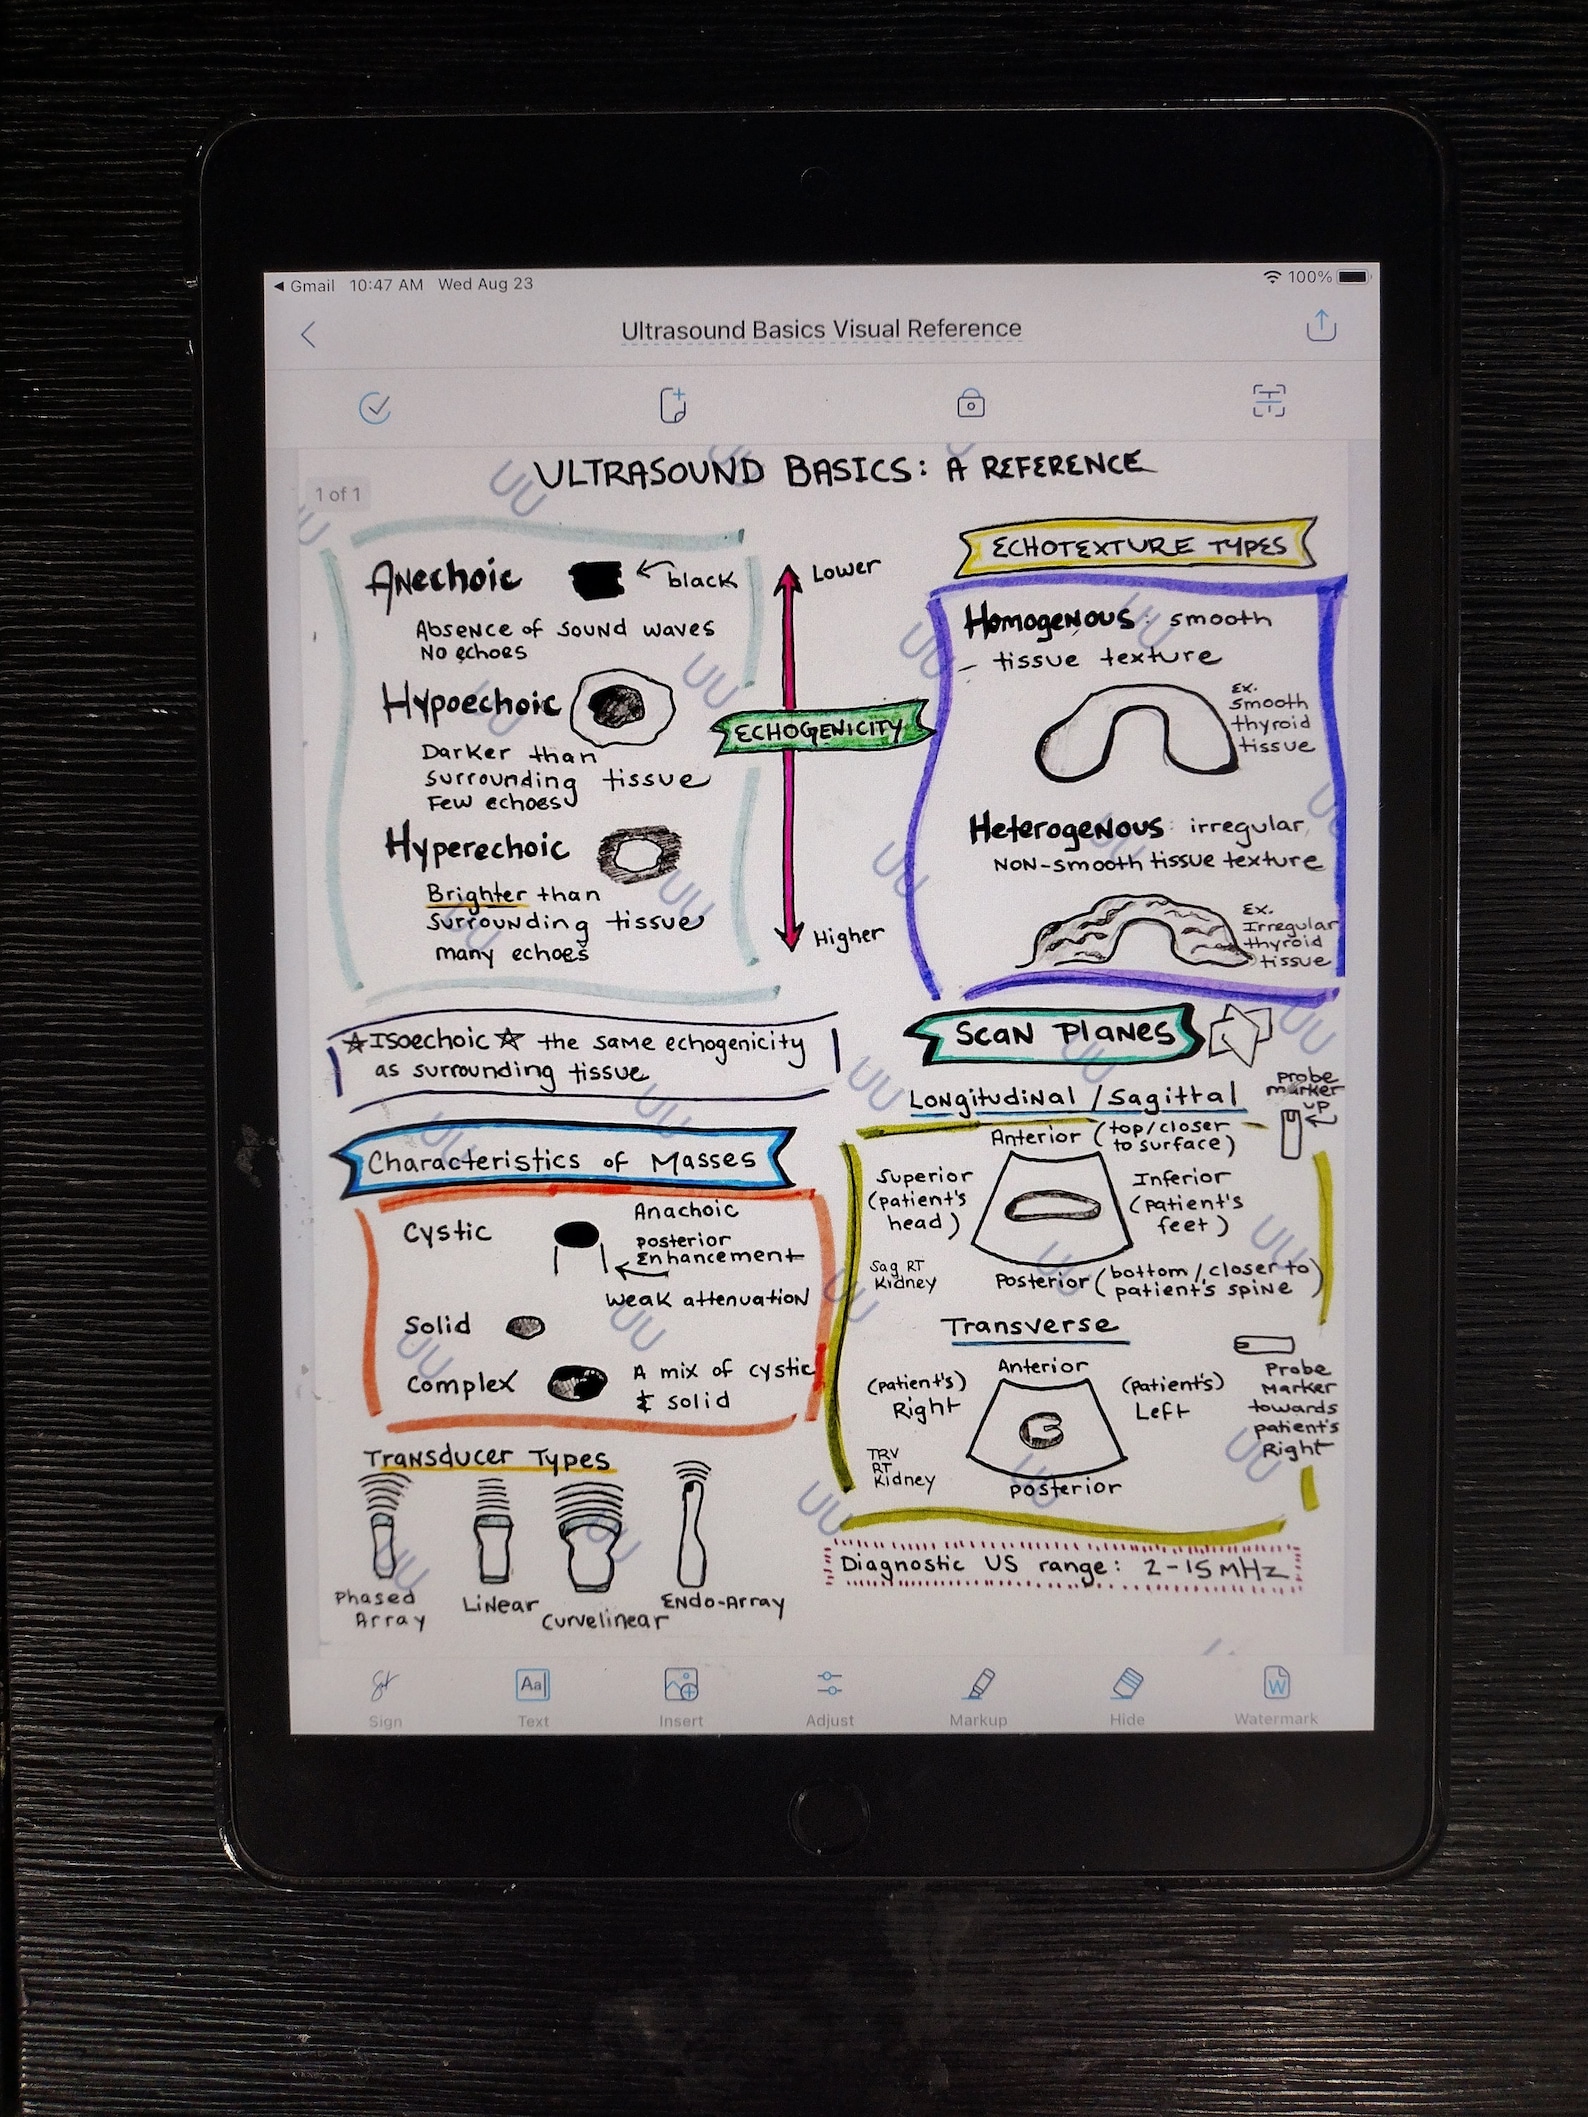 Gmail 10:47 AM Wed Aug 23
100%
Ultrasound Basics Visual Reference
1 of 1
ULTRASOUND BASICS: A REFERENCE
Anechoic
black
Absence of sound waves
No echoes
Hypoechoic
Darker than
surrounding tissue
Few echoes
Hyperechoic
Brighter than
surrounding tissue
many echoes
Lower
ECHOGENICITY
Higher
ECHOTEXTURE TYPES
Homogenous: smooth
tissue texture
Ex.
smooth
thyroid
tissue
Heterogenous: irregular,
NON-smooth tissue texture
Ex.
Irregular
thyroid
tissue
Isoechoic the same echogenicity
as surrounding tissue
Characteristics of Masses
Cystic
Anachoic
posterior
Enhancement
Weak attenuation
Solid
Complex
A mix of cystic
& solid
Transducer Types
Phased
Array
Linear
Curvelinear
Endo-Array
Scan Planes
Longitudinal / Sagittal
probe
marker
up
Anterior (top/closer
to surface)
Superior
(patient's
head)
Inferior
(patient's
feet)
Sag RT
Kidney
Posterior (bottom/closer to
patient's spine)
Transverse
Anterior
(patient's)
Right
(patient's)
Left
Probe
Marker
towards
patient's
Right
TRV
RT
Kidney
posterior
Diagnostic US range: 2-15 MHz
Sign
Text
Insert
Adjust
Markup
Hide
Watermark